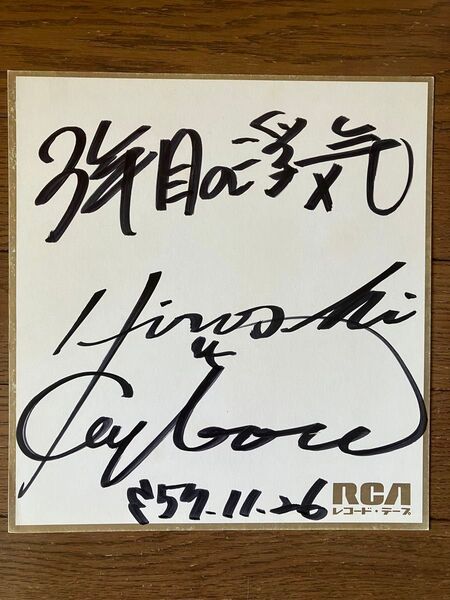 3年目の浮気
Hiroshi
&
Keybow
S57.11.26
RCA
レコード・テープ